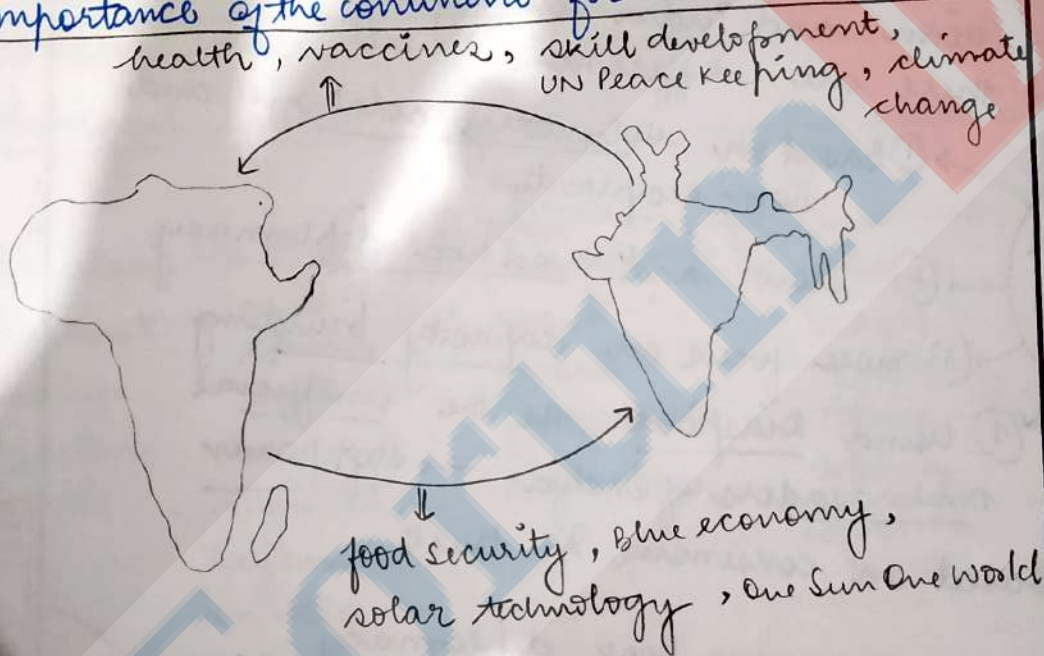 importance of the continent
health, vaccines, skill development,
UN Peace Keeping, climate
change
food security, Blue economy,
solar technology, One Sun One World
Forum